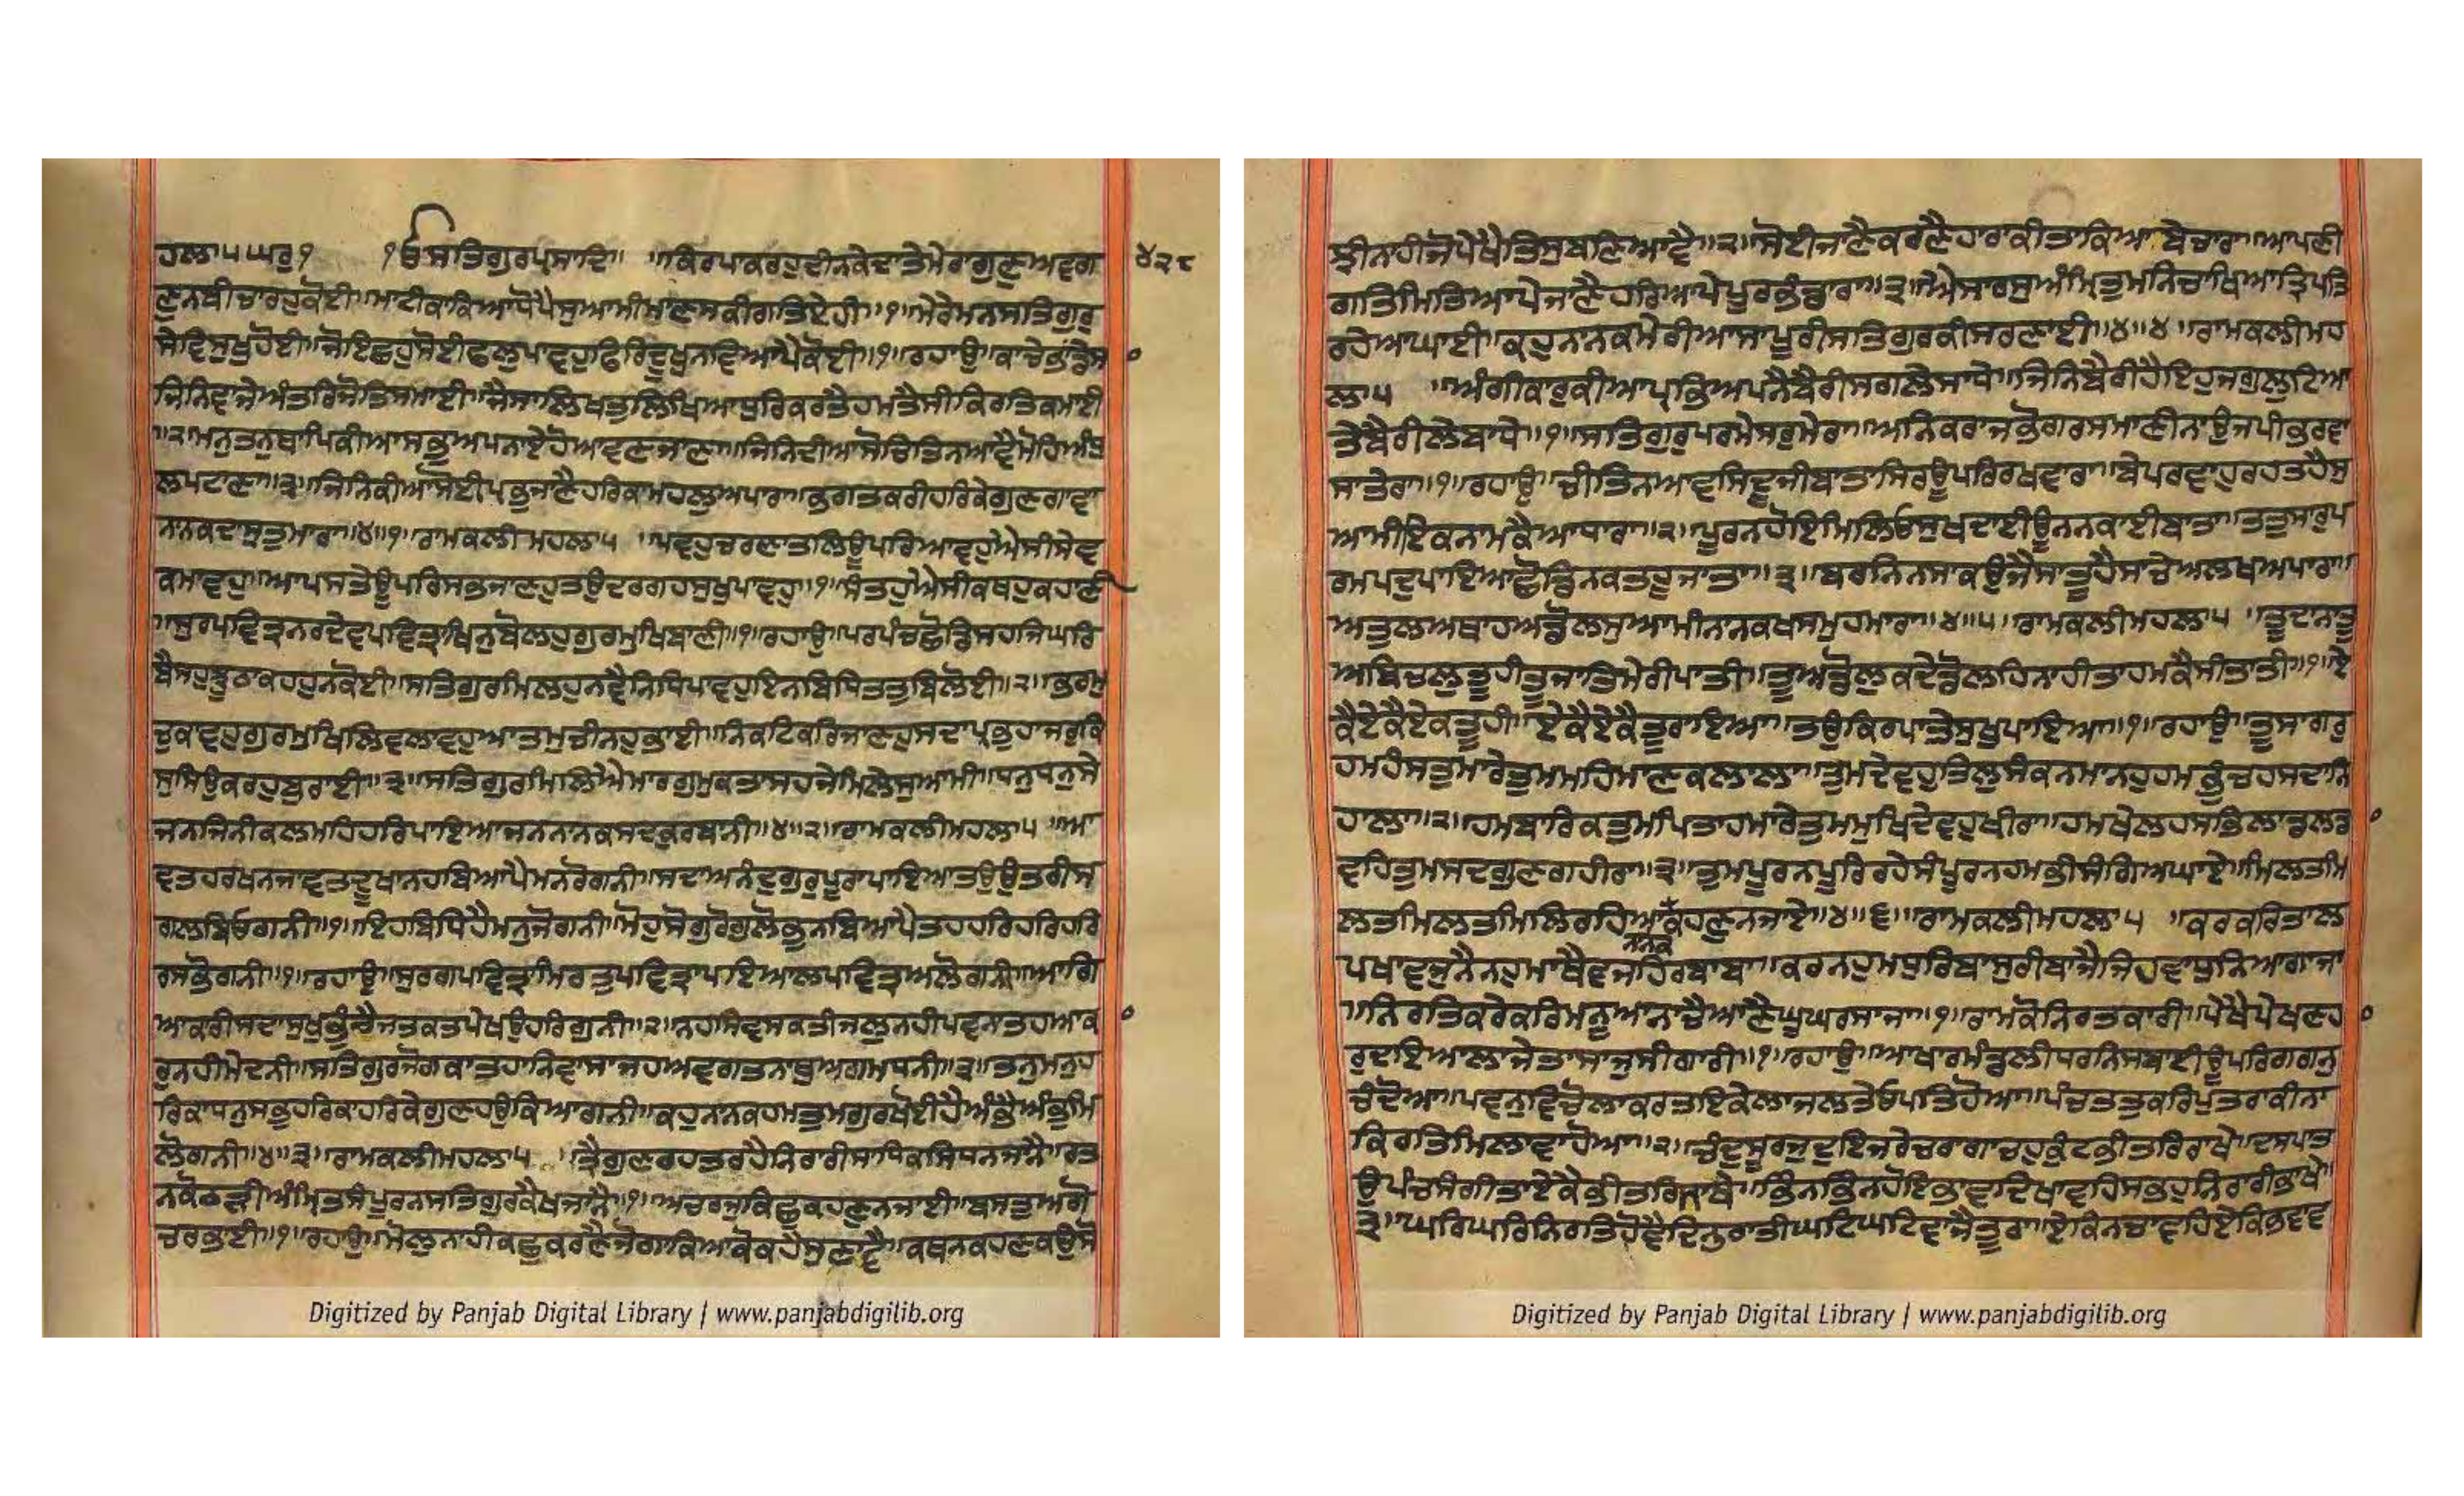 ਹਲਾ੫ਘਰੁ੧ ੧ਓਸਤਿਗੁਰਪ੍ਰਸਾਦਿ॥ ॥ਕਿਰਪਾਕਰਹੁਦੀਨਕੇਦਾਤੇਮੇਰਾਗੁਣੁਅਵਗ ੪੨੮
ਣੁਨਬੀਚਾਰਹੁਕੋਈ॥ਮਾਟੀਕਾਕਿਆਧੋਪੈਸੁਆਮੀਮਾਣਸਕੀਗਤਿਏਹੀ॥੧॥ਮੇਰੇਮਨਸਤਿਗੁਰੁ
ਸੇਵਿਸੁਖੁਹੋਈ॥ਜੋਇਛਹੁਸੋਈਫਲੁਪਾਵਹੁਫਿਰਿਦੂਖੁਨਵਿਆਪੈਕੋਈ॥੧॥ਰਹਾਉ॥ਕਾਚੇਭਾਡੇਸ
ਜਿਨਿਵਾਜੇਅੰਤਰਿਜੋਤਿਸਮਾਈ॥ਜੈਸਾਲਿਖਤੁਲਿਖਿਆਧੁਰਿਕਰਤੈਹਮਤੈਸੀਕਿਰਤਿਕਮਾਈ
॥੨॥ਮਨੁਤਨੁਥਾਪਿਕੀਆਸਭੁਅਪਨਾਏਹੋਆਵਣਜਾਣਾ॥ਜਿਨਿਦੀਆਸੋਚਿਤਿਨਆਵੈਮੋਹਿਅੰਧੁ
ਲਪਟਾਣਾ॥੩॥ਜਿਨਿਕੀਆਸੋਈਪ੍ਰਭੁਜਾਣੈਹਰਿਕਾਮਹਲੁਅਪਾਰਾ॥ਭਗਤਕਰੀਹਰਿਕੇਗੁਣਗਾਵਾ
ਨਾਨਕਦਾਸੁਤੁਮਾਰਾ॥੪॥੧॥ਰਾਮਕਲੀਮਹਲਾ੫ ॥ਪਵਹੁਚਰਣਾਤਲਿਊਪਰਿਆਵਹੁਐਸੀਸੇਵ
ਕਮਾਵਹੁ॥ਆਪਸਤੇਊਪਰਿਸਭਜਾਣਹੁਤਉਦਰਗਹਸੁਖੁਪਾਵਹੁ॥੧॥ਸੰਤਹੁਐਸੀਕਥਹੁਕਹਾਣੀ
॥ਸੁਰਪਵਿਤ੍ਰਨਰਦੇਵਪਵਿਤ੍ਰਾਖਿਨੁਬੋਲਹੁਗੁਰਮੁਖਿਬਾਣੀ॥੧॥ਰਹਾਉ॥ਪਰਪੰਚਛੋਡਿਸਹਜਿਘਰਿ
ਬੈਸਹੁਝੂਠਾਕਹਹੁਨਕੋਈ॥ਸਤਿਗੁਰਮਿਲਹੁਨਵੈਨਿਧਿਪਾਵਹੁਇਨਬਿਧਿਤਤੁਬਿਲੋਈ॥੨॥ਭਰਮੁ
ਚੁਕਾਵਹੁਗੁਰਮੁਖਿਲਿਵਲਾਵਹੁਆਤਮੁਚੀਨਹੁਭਾਈ॥ਨਿਕਟਿਕਰਿਜਾਣਹੁਸਦਾਪ੍ਰਭੁਹਾਜਰੁਕਿ
ਸੁਸਿਉਕਰਹੁਬੁਰਾਈ॥੩॥ਸਤਿਗੁਰਮਿਲਿਐਮਾਰਗੁਮੁਕਤਾਸਹਜੇਮਿਲੇਸੁਆਮੀ॥ਧਨੁਧਨੁਸੇ
ਜਨਜਿਨੀਕਲਮਹਿਹਰਿਪਾਇਆਜਨਨਾਨਕਸਦਕੁਰਬਾਨੀ॥੪॥੨॥ਰਾਮਕਲੀਮਹਲਾ੫ ॥ਆ
ਵਤਹਰਖਨਜਾਵਤਦੂਖਾਨਹਬਿਆਪੈਮਨਰੋਗਨੀ॥ਸਦਾਅਨੰਦੁਗੁਰੁਪੂਰਾਪਾਇਆਤਉਉਤਰੀਸ
ਗਲਬਿਓਗਨੀ॥੧॥ਇਹਬਿਧਿਹੈਮਨੁਜੋਗਨੀ॥ਮੋਹੁਸੋਗੁਰੋਗੁਲੋਕੁਨਬਿਆਪੈਤਹਹਰਿਹਰਿਹਰਿ
ਰਸਭੋਗਨੀ॥੧॥ਰਹਾਉ॥ਸੁਰਗਪਵਿਤ੍ਰਾਮਿਰਤੁਪਵਿਤ੍ਰਾਪਇਆਲਪਵਿਤ੍ਰਅਲੋਗਨੀ॥ਆਗਿ
ਆਕਾਰੀਸਦਾਸੁਖੁਭੁੰਚੈਜਤਕਤਪੇਖਉਹਰਿਗੁਨੀ॥੨॥ਨਹਸਿਵਸਕਤੀਜਲੁਨਹੀਪਵਨਾਤਹਆਕਾ
ਰੁਨਹੀਮੇਦਨੀ॥ਸਤਿਗੁਰਜੋਗਕਾਤਹਾਨਿਵਾਸਾਜਹਅਵਗਤਨਾਥੁਅਗਮਧਨੀ॥੩॥ਤਨੁਮਨੁਹ
ਰਿਕਾਧਨੁਸਭੁਹਰਿਕਾਹਰਿਕੇਗੁਣਹਉਕਿਆਗਨੀ॥ਕਹੁਨਾਨਕਹਮਤੁਮਗੁਰਖੋਈਹੈਅੰਭੈਅੰਭੁਮਿ
ਲੋਗਨੀ॥੪॥੩॥ਰਾਮਕਲੀਮਹਲਾ੫ ॥ਤ੍ਰੈਗੁਣਰਹਤਰਹੈਨਿਰਾਰੀਸਾਧਿਕਸਿਧਨਜਾਨੈ॥ਰਤ
ਨਕੋਠੜੀਅੰਮ੍ਰਿਤਸੰਪੂਰਨਸਤਿਗੁਰਕੈਖਜਾਨੈ॥੧॥ਅਚਰਜੁਕਿਛੁਕਹਣੁਨਜਾਈ॥ਬਸਤੁਅਗੋ
ਚਰਭਾਈ॥੧॥ਰਹਾਉ॥ਮੋਲੁਨਾਹੀਕਛੁਕਰਣੈਜੋਗਾਕਿਆਕੋਕਹੈਸੁਣਾਵੈ॥ਕਥਨਕਹਣਕਉਸੋ
Digitized by Panjab Digital Library | www.panjabdigilib.org
ਝੀਨਾਹੀਜੋਪੇਖੈਤਿਸੁਬਣਿਆਵੈ॥੨॥ਸੋਈਜਾਣੈਕਰਣੈਹਾਰਾਕੀਤਾਕਿਆਬੇਚਾਰਾ॥ਆਪਣੀ
ਗਤਿਮਿਤਿਆਪੇਜਾਣੈਹਰਿਆਪੇਪੂਰਭੰਡਾਰਾ॥੩॥ਐਸਾਰਸੁਅੰਮ੍ਰਿਤੁਮਨਿਚਾਖਿਆਤ੍ਰਿਪਤਿ
ਰਹੇਅਘਾਈ॥ਕਹੁਨਾਨਕਮੇਰੀਆਸਾਪੂਰੀਸਤਿਗੁਰਕੀਸਰਣਾਈ॥੪॥੪॥ਰਾਮਕਲੀਮਹ
ਲਾ੫ ॥ਅੰਗੀਕਾਰੁਕੀਆਪ੍ਰਭਿਅਪਨੈਬੈਰੀਸਗਲੇਸਾਧੇ॥ਜਿਨਿਬੈਰੀਹੈਇਹੁਜਗੁਲੂਟਿਆ
ਤੇਬੈਰੀਲੇਬਾਧੇ॥੧॥ਸਤਿਗੁਰੁਪਰਮੇਸਰੁਮੇਰਾ॥ਅਨਿਕਰਾਜਭੋਗਰਸਮਾਣੀਨਾਉਜਪੀਭਰਵਾ
ਸਾਤੇਰਾ॥੧॥ਰਹਾਉ॥ਚੀਤਿਨਆਵਸਿਦੂਜੀਬਾਤਾਸਿਰਊਪਰਿਰਖਵਾਰਾ॥ਬੇਪਰਵਾਹੁਰਹਤਹੈਸੁ
ਆਮੀਇਕਨਾਮਕੈਆਧਾਰਾ॥੨॥ਪੂਰਨਹੋਇਮਿਲਿਓਸੁਖਦਾਈਊਨਨਕਾਈਬਾਤਾ॥ਤਤੁਸਾਰੁਪ
ਰਮਪਦੁਪਾਇਆਛੋਡਿਨਕਤਹੂਜਾਤਾ॥੩॥ਬਰਨਿਨਸਾਕਉਜੈਸਾਤੂਹੈਸਾਚੇਅਲਖਅਪਾਰਾ॥
ਅਤੁਲਅਥਾਹਅਡੋਲਸੁਆਮੀਨਾਨਕਖਸਮੁਹਮਾਰਾ॥੪॥੫॥ਰਾਮਕਲੀਮਹਲਾ੫ ॥ਤੂਦਾਨਾਤੂ
ਅਬਿਚਲੁਤੂਹੀਤੂਜਾਤਿਮੇਰੀਪਾਤੀ॥ਤੂਅਡੋਲੁਕਦੇਡੋਲਹਿਨਾਹੀਤਾਹਮਕੈਸੀਤਾਤੀ॥੧॥ਏ
ਕੈਏਕੈਏਕਤੂਹੀ॥ਏਕੈਏਕੈਤੂਰਾਇਆ॥ਤਉਕਿਰਪਾਤੇਸੁਖੁਪਾਇਆ॥੧॥ਰਹਾਉ॥ਤੂਸਾਗਰੁ
ਹਮਹੰਸਤੁਮਾਰੇਤੁਮਮਹਿਮਾਣਕਲਾਲਾ॥ਤੁਮਦੇਵਹੁਤਿਲੁਸੰਕਨਮਾਨਹੁਹਮਭੁੰਚਹਸਦਾਨਿ
ਹਾਲਾ॥੨॥ਹਮਬਾਰਿਕਤੁਮਪਿਤਾਹਮਾਰੇਤੁਮਮੁਖਿਦੇਵਹੁਖੀਰਾ॥ਹਮਖੇਲਹਸਭਿਲਾਡਲਡਾ
ਵਹਿਤੁਮਸਦਗੁਣਗਹੀਰਾ॥੩॥ਤੁਮਪੂਰਨਪੂਰਿਰਹੇਸੰਪੂਰਨਹਮਭੀਸੰਗਿਅਘਾਏ॥ਮਿਲਤਮਿ
ਲਤਮਿਲਤਮਿਲਿਰਹਿਆਕਹਣੁਨਜਾਏ॥੪॥੬॥ਰਾਮਕਲੀਮਹਲਾ੫ ॥ਕਰਕਰਿਤਾਲ
ਨਾਨਕ
ਪਖਾਵਜੁਨੈਨਹੁਮਾਥੈਵਜਹਿਰਬਾਬਾ॥ਕਰਨਹੁਮਧੁਰਿਬਾਸੁਰੀਬਾਜੈਜਿਹਵਾਧੁਨਿਆਗਾਜਾ
॥ਨਿਰਤਿਕਰੇਕਰਿਮਨੂਆਨਾਚੈਆਣੈਘੂਘਰਸਾਜਾ॥੧॥ਰਾਮਕੋਨਿਰਤਕਾਰੀ॥ਪੇਖੈਪੇਖਣਹਾ
ਰੁਦਇਆਲਾਜੇਤਾਸਾਜੁਸੀਗਾਰੀ॥੧॥ਰਹਾਉ॥ਆਖਾਰਮੰਡਲੀਧਰਨਿਸਬਾਈਊਪਰਿਗਗਨੁ
ਚੰਦੋਆ॥ਪਵਨੁਵਿਚੋਲਾਕਰਤਇਕੇਲਾਜਲਤੇਓਪਤਿਹੋਆ॥ਪੰਚਤਤੁਕਰਿਪੁਤਰਾਕੀਨਾ
ਕਿਰਤਿਮਿਲਾਵਾਹੋਆ॥੨॥ਚੰਦੁਸੂਰਜੁਦੁਇਜਰੇਚਰਾਗਾਚਹੁਕੁੰਟਭੀਤਰਿਰਾਖੇ॥ਦਸਪਾਤ
ਉਪੰਚਸੰਗੀਤਾਏਕੈਭੀਤਰਿਸਾਥੇ॥ਭਿੰਨਭਿੰਨਹੋਇਭਾਵਦਿਖਾਵਹਿਸਭਹੁਨਿਰਾਰੀਭਾਖੇ॥
੩॥ਘਰਿਘਰਿਨਿਰਤਿਹੋਵੈਦਿਨੁਰਾਤੀਘਟਿਘਟਿਵਾਜੈਤੂਰਾ॥ਏਕਿਨਚਾਵਹਿਏਕਿਭਵਾਵ
Digitized by Panjab Digital Library | www.panjabdigilib.org